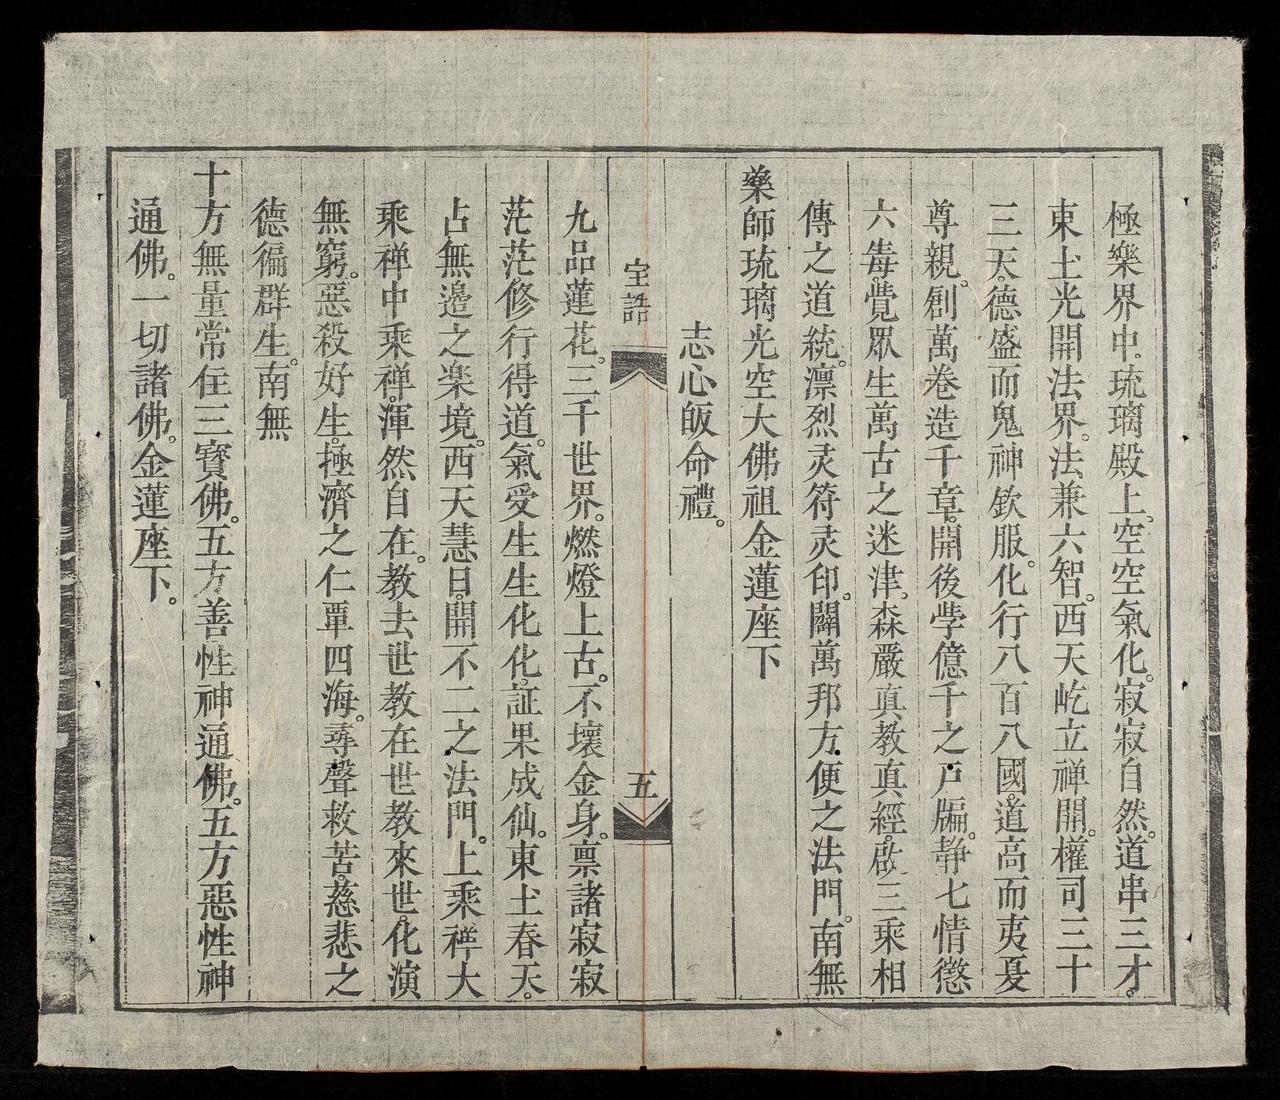 極樂界中。琉璃殿上。空空氣化。寂寂自然。道串三才。
東土光開法界。法兼六智。西天屹立禅開。權司三十
三天。德盛而鬼神欽服。化行八百八國。道高而夷戛
尊親。創萬卷造千章。開後學億千之戸牖。静七情懲
六毒。覺眾生萬古之迷津。森嚴真教真經。啟三乘相
傳之道統。凛烈灵符灵印。闢萬邦方便之法門。南無
藥師琉璃光空大佛祖金蓮座下
志心皈命禮。
宝誥
五
九品蓮花。三千世界。燃燈上古。不壞金身。禀諸寂寂
茫茫。修行得道。氣受生生化化。証果成仙。東土春天。
占無邊之楽境。西天慧日。開不二之法門。上乘禅大
乘禅中乘禅。渾然自在。教去世教在世教來世。化演
無窮。惡殺好生。極濟之仁覃四海。尋聲救苦。慈悲之
德徧群生。南無
十方無量常住三寳佛。五方善性神通佛。五方惡性神
通佛。一切諸佛。金蓮座下。